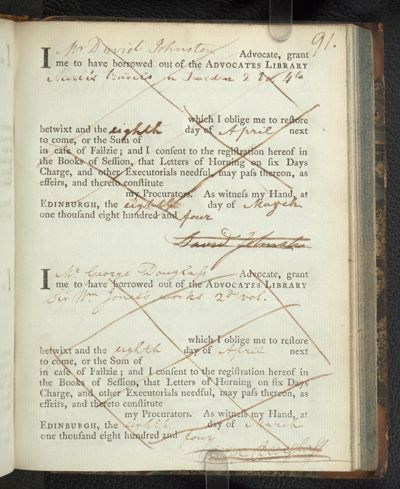 91.
I Mr David Johnston Advocate, grant
me to have borrowed out of the ADVOCATES LIBRARY
travels in Sweden 2 to 4to
which I oblige me to reſtore
betwixt and the eighth day of April next
to come, or the Sum of
in caſe of Failzie; and I conſent to the regiſtration hereof in
the Books of Seſſion, that Letters of Horning on ſix Days
Charge, and other Executorials needful, may paſs thereon, as
effeirs, and thereto conſtitute
my Procurators. As witneſs my Hand, at
EDINBURGH, the eighth day of March
one thouſand eight hundred and four
David Johnston
I Mr George Douglaſs Advocate, grant
me to have borrowed out of the ADVOCATES LIBRARY
Sir Wm Jones's works 2d vol.
which I oblige me to reſtore
betwixt and the eighth day of April next
to come, or the Sum of
in caſe of Failzie; and I conſent to the regiſtration hereof in
the Books of Seſſion, that Letters of Horning on ſix Days
Charge, and other Executorials needful, may paſs thereon, as
effeirs, and thereto conſtitute
my Procurators. As witneſs my Hand, at
EDINBURGH, the eighth day of March
one thouſand eight hundred and four
Douglaſs